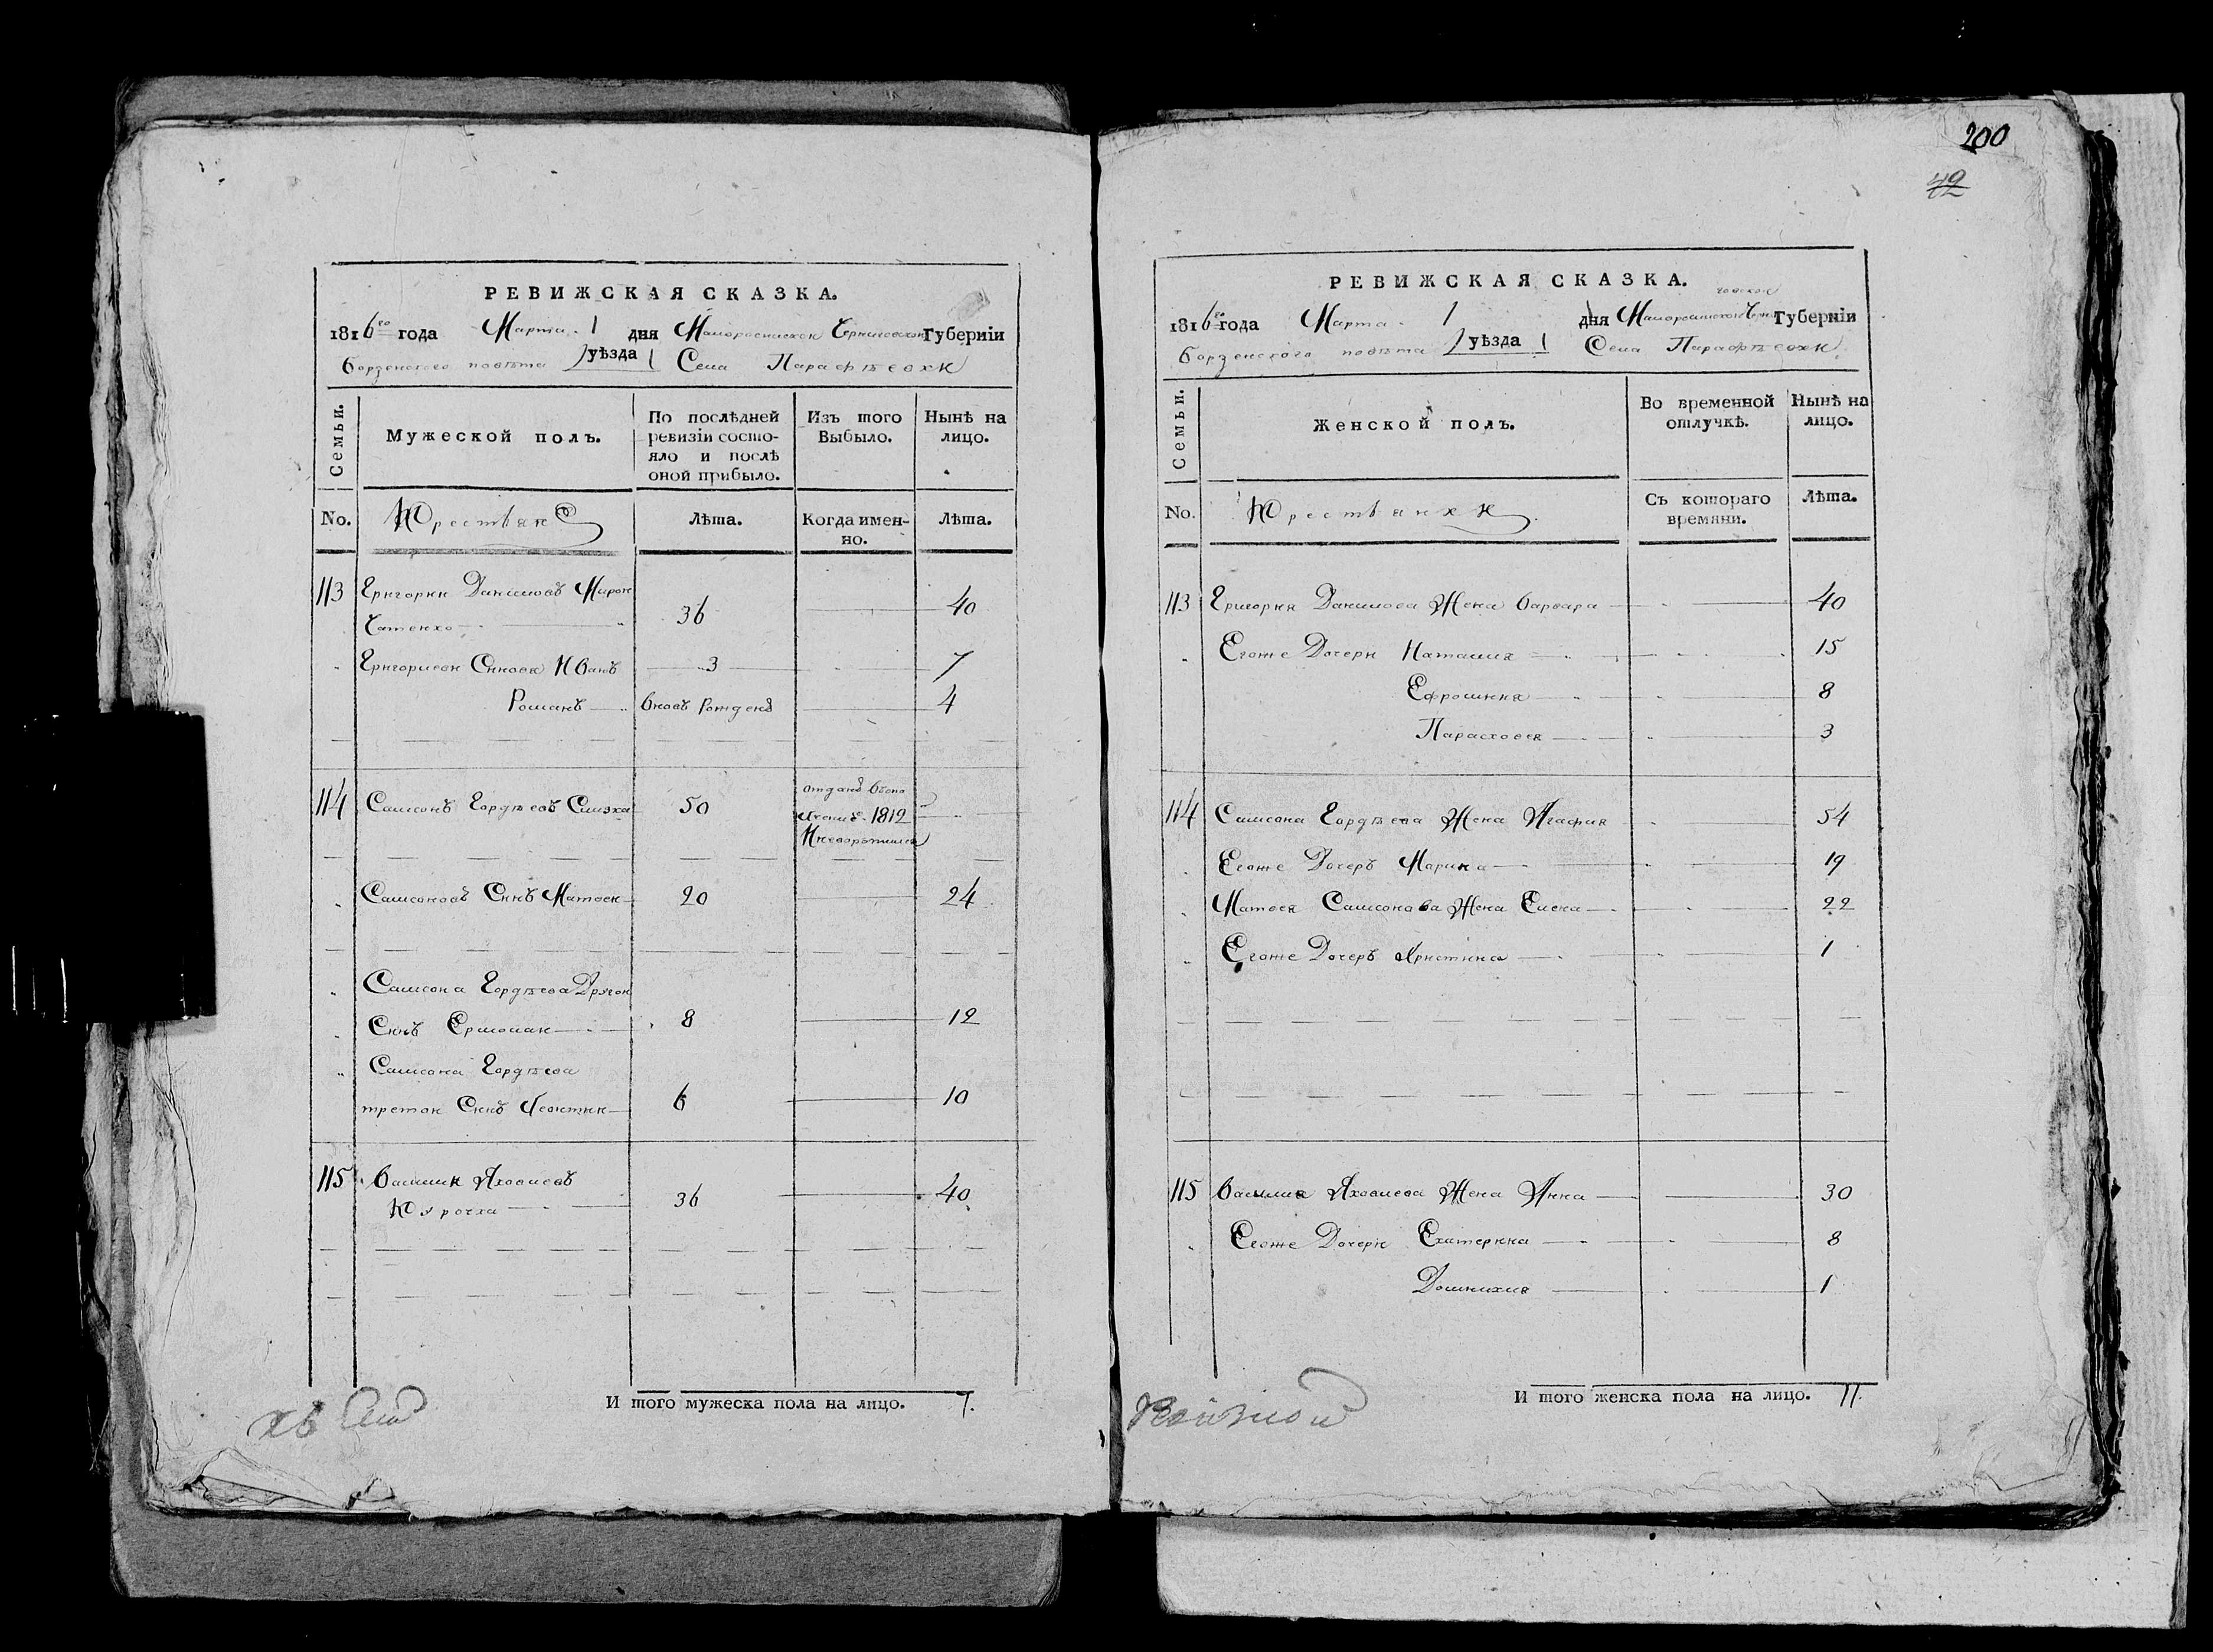 200
42
РЕВИЖСКАЯ СКАЗКА.
1816го года Марта 1 дня Малоросийской Черниговской Губерніи
Борзенского повѣта уѣзда Села Парафѣевки
Семьи.
Мужеской полъ.
По послѣдней ревизіи состо-
яло и послѣ
оной прибыло.
Изъ того
Выбыло.
Нынѣ на
лицо.
No.
Крестьяне
Лѣта.
Когда имен-
но.
Лѣта.
113 Григорий Даниловъ Мирон
чатенко 36 40
Григориеви Синови Иванъ 3 7
Романъ вновь рожденъ 4
114 Самсонъ Гордѣевъ Слизка 50 отданъ в опо
лчение 1812
И неворотился
Самсоновъ Синъ Матвей 20 24
Самсона Гордѣева Другой
Синъ Ермолай 8 12
Самсона Гордѣева
третой Синъ Леонтий 6 10
115 Василий Яковлевъ
Курочка 36 40
И того мужеска пола на лицо. 7.
РЕВИЖСКАЯ СКАЗКА.
1816го года Марта 1 дня Малоросийской Черниговской Губерніи
Борзенского повѣта уѣзда Села Парафѣевки
Семьи.
Женской полъ.
Во временной
отлучкѣ.
Нынѣ на
лицо.
No.
Крестьянки
Съ котораго
времяни.
Лѣта.
113 Григория Данилова Жена Варвара 40
Егоже Дочери Наталия 15
Ефросиния 8
Парасковея 3
114 Самсона Гордѣева Жена Агафия 54
Егоже Дочерь Марина 19
Матвея Самсонова Жена Елена 22
Егоже Дочерь Христина 1
115 Василия Яковлева Жена Анна 30
Егоже Дочери Екатерина 8
Домникия 1
И того женска пола на лицо. 11.